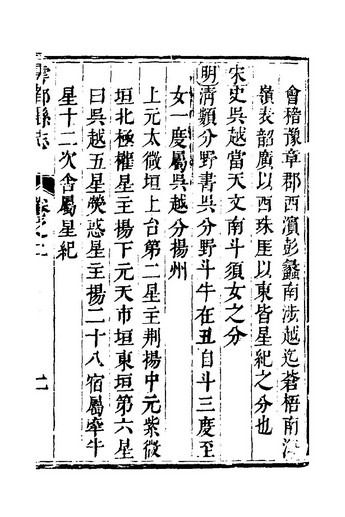 會稽豫章郡西濱彭蠡南涉越迄蒼梧南海
嶺表韶廣以西珠厓以東皆星紀之分也
宋史吳越當天文南斗須女之分
明清類分野書吳分野斗牛在丑自斗三度至
女一度屬吳越分揚州
上元太微垣上台第二星主荆揚中元紫微
垣北極權星主揚下元天市垣東垣第六星
曰吳越五星熒惑星主揚二十八宿屬牽牛
星十二次舍屬星紀
雩都縣志
卷之二